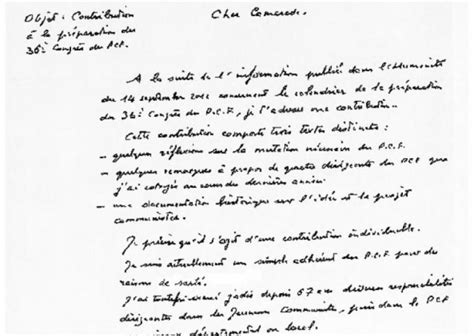 Objet : Contribution
à la préparation du
36è Congrès du PCF.
Cher Camarade,
A la suite de l'information publiée dans l'Humanité
du 14 septembre concernant le calendrier de la préparation
du 36è Congrès du P.C.F, je t'adresse une contribution.
Cette contribution comporte trois textes distincts :
- quelques réflexions sur la mutation nécessaire du P.C.F.
- quelques remarques à propos de quatre dirigeants du PCF que
j'ai cotoyés au cours des dernières années
- une documentation historique sur l'idée et le projet
communistes.
Je précise qu'il s'agit d'une contribution individuelle.
Je suis actuellement un simple adhérent du P.C.F pour des
raisons de santé.
J'ai toutefois exercé jadis depuis 57 ans diverses responsabilités
dirigeantes dans les Jeunesses Communistes, puis dans le PCF
départemental ou local.